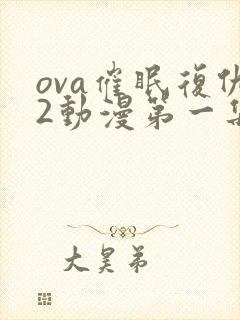 ova催眠復仇
2動漫第一集
大昊弟